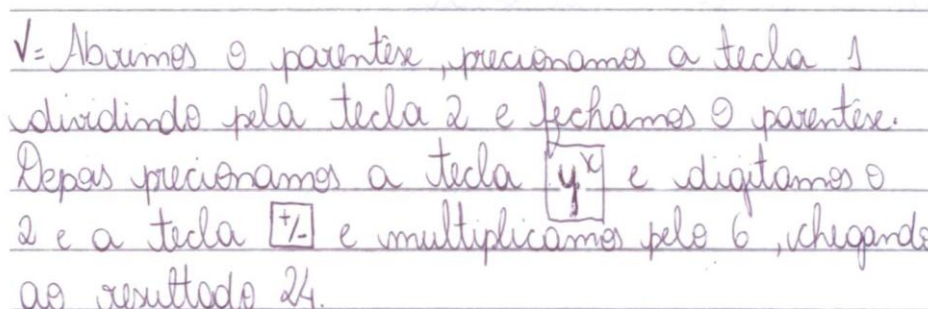 V= Abrimos o parentêse, precionamos a tecla 1
dividindo pela tecla 2 e fechamos o parentêse.
Depois precionamos a tecla y^x e digitamos o
2 e a tecla +/- e multiplicamos pelo 6, chegando
ao resultado 24.